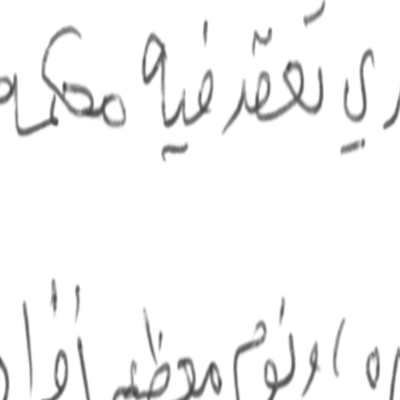 ري تعقد فيه محكمة
ونوم معظم أفرا